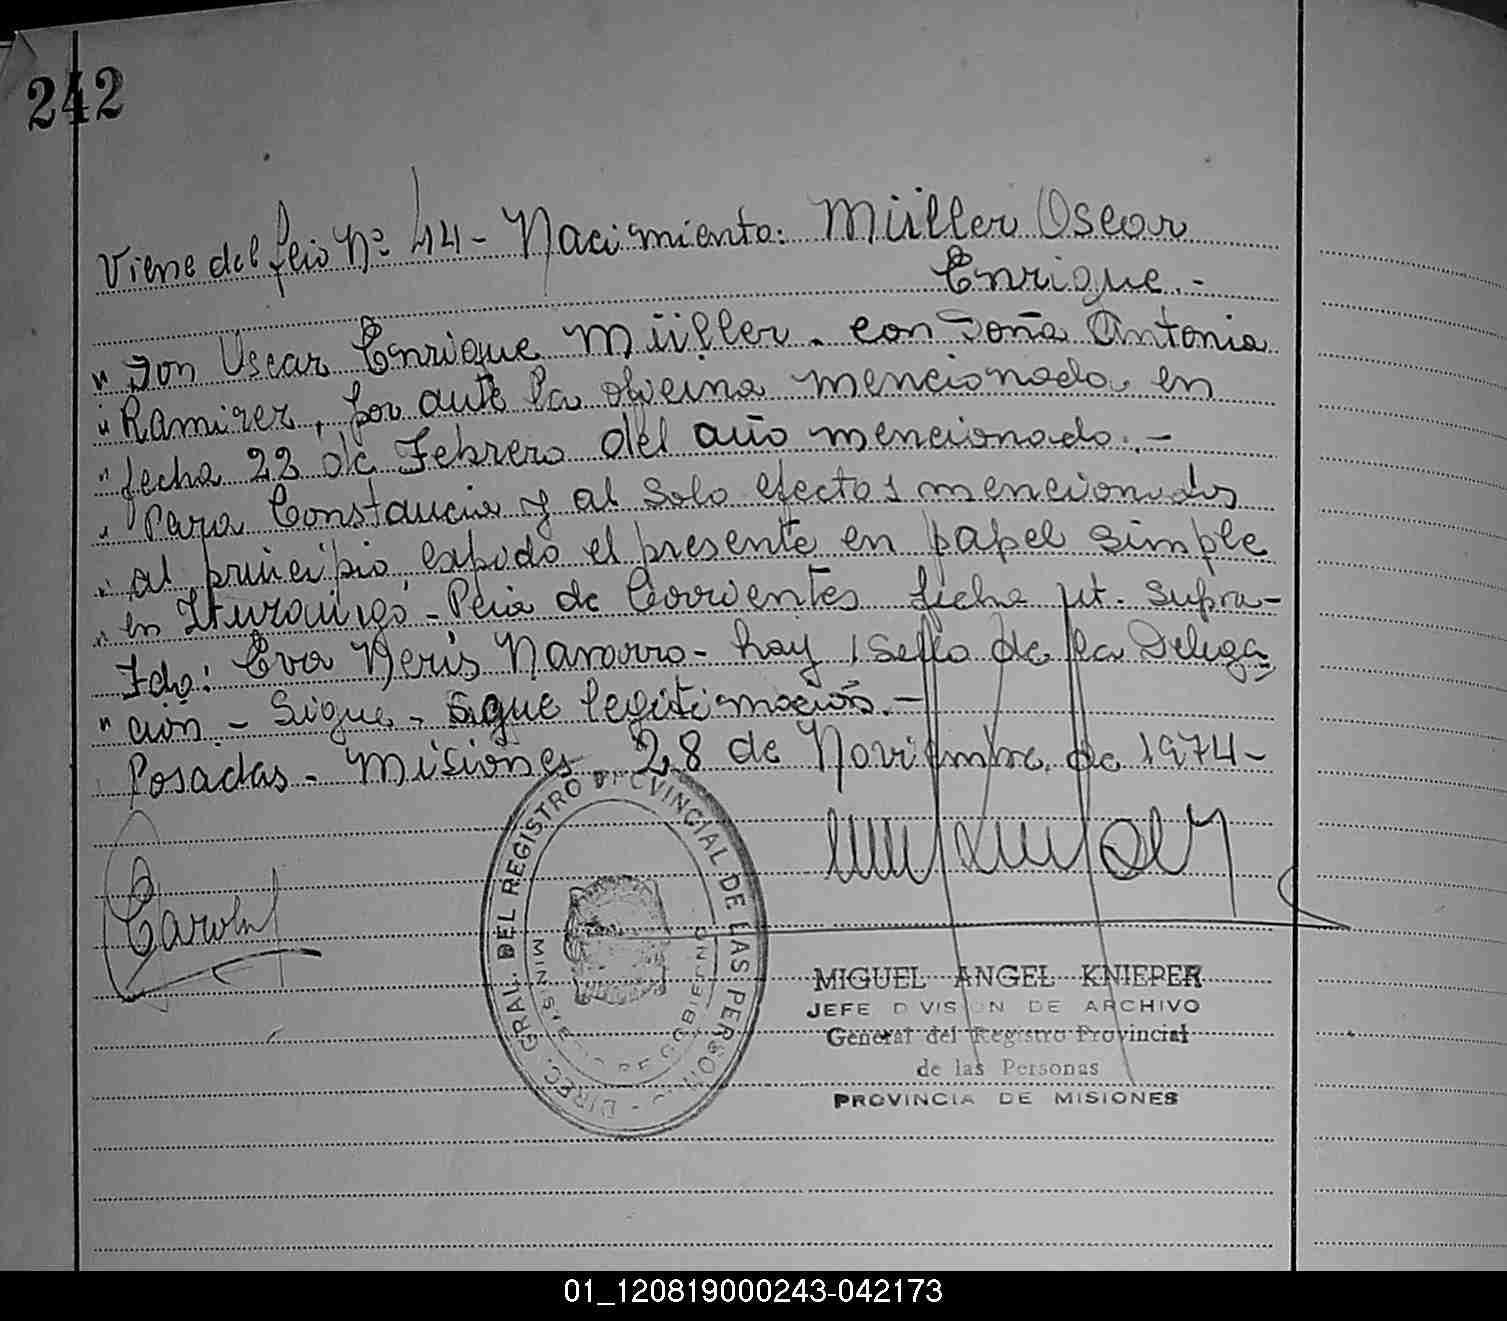 242
Viene del folio Nº 44 - Nacimiento: Müller Oscar
Enrique.-
" Don Oscar Enrique Müller. con Doña Antonia
" Ramirez, por ante la oficina mencionada, en
" fecha 22 de Febrero del año mencionado.-
" Para Constancia y al solo efectos mencionados
" al principio expido el presente en papel simple
" en Ituzaingó - Pcia de Corrientes fecha ut. supra-
Fdo: Eva Neris Navarro - hay 1 sello de la Delega
" ción. - Sigue, sigue legitimación.-
Posadas - Misiones 28 de Noviembre de 1974-
DIREC. GRAL. DEL REGISTRO PROVINCIAL DE LAS PERSONAS
MINISTERIO DE GOBIERNO
MIGUEL ANGEL KNIEPER
JEFE DIVISION DE ARCHIVO
General del Registro Provincial
de las Personas
PROVINCIA DE MISIONES
01_120819000243-042173